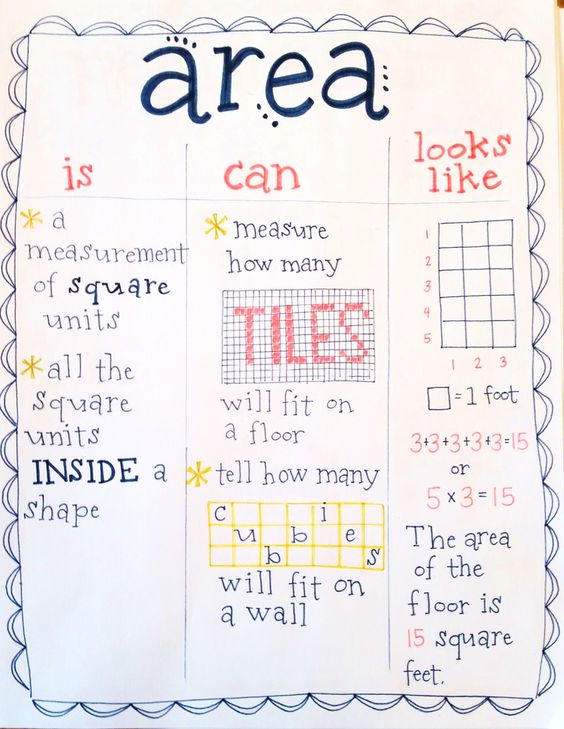 area
is
* a
measurement
of square
units
* all the
square
units
INSIDE a
shape
can
* measure
how many
TILES
will fit on
a floor
* tell how many
cubbies
will fit on
a wall
looks
like
1
2
3
4
5
1 2 3
□ = 1 foot
3+3+3+3+3=15
or
5 x 3 = 15
The area
of the
floor is
15 square
feet.